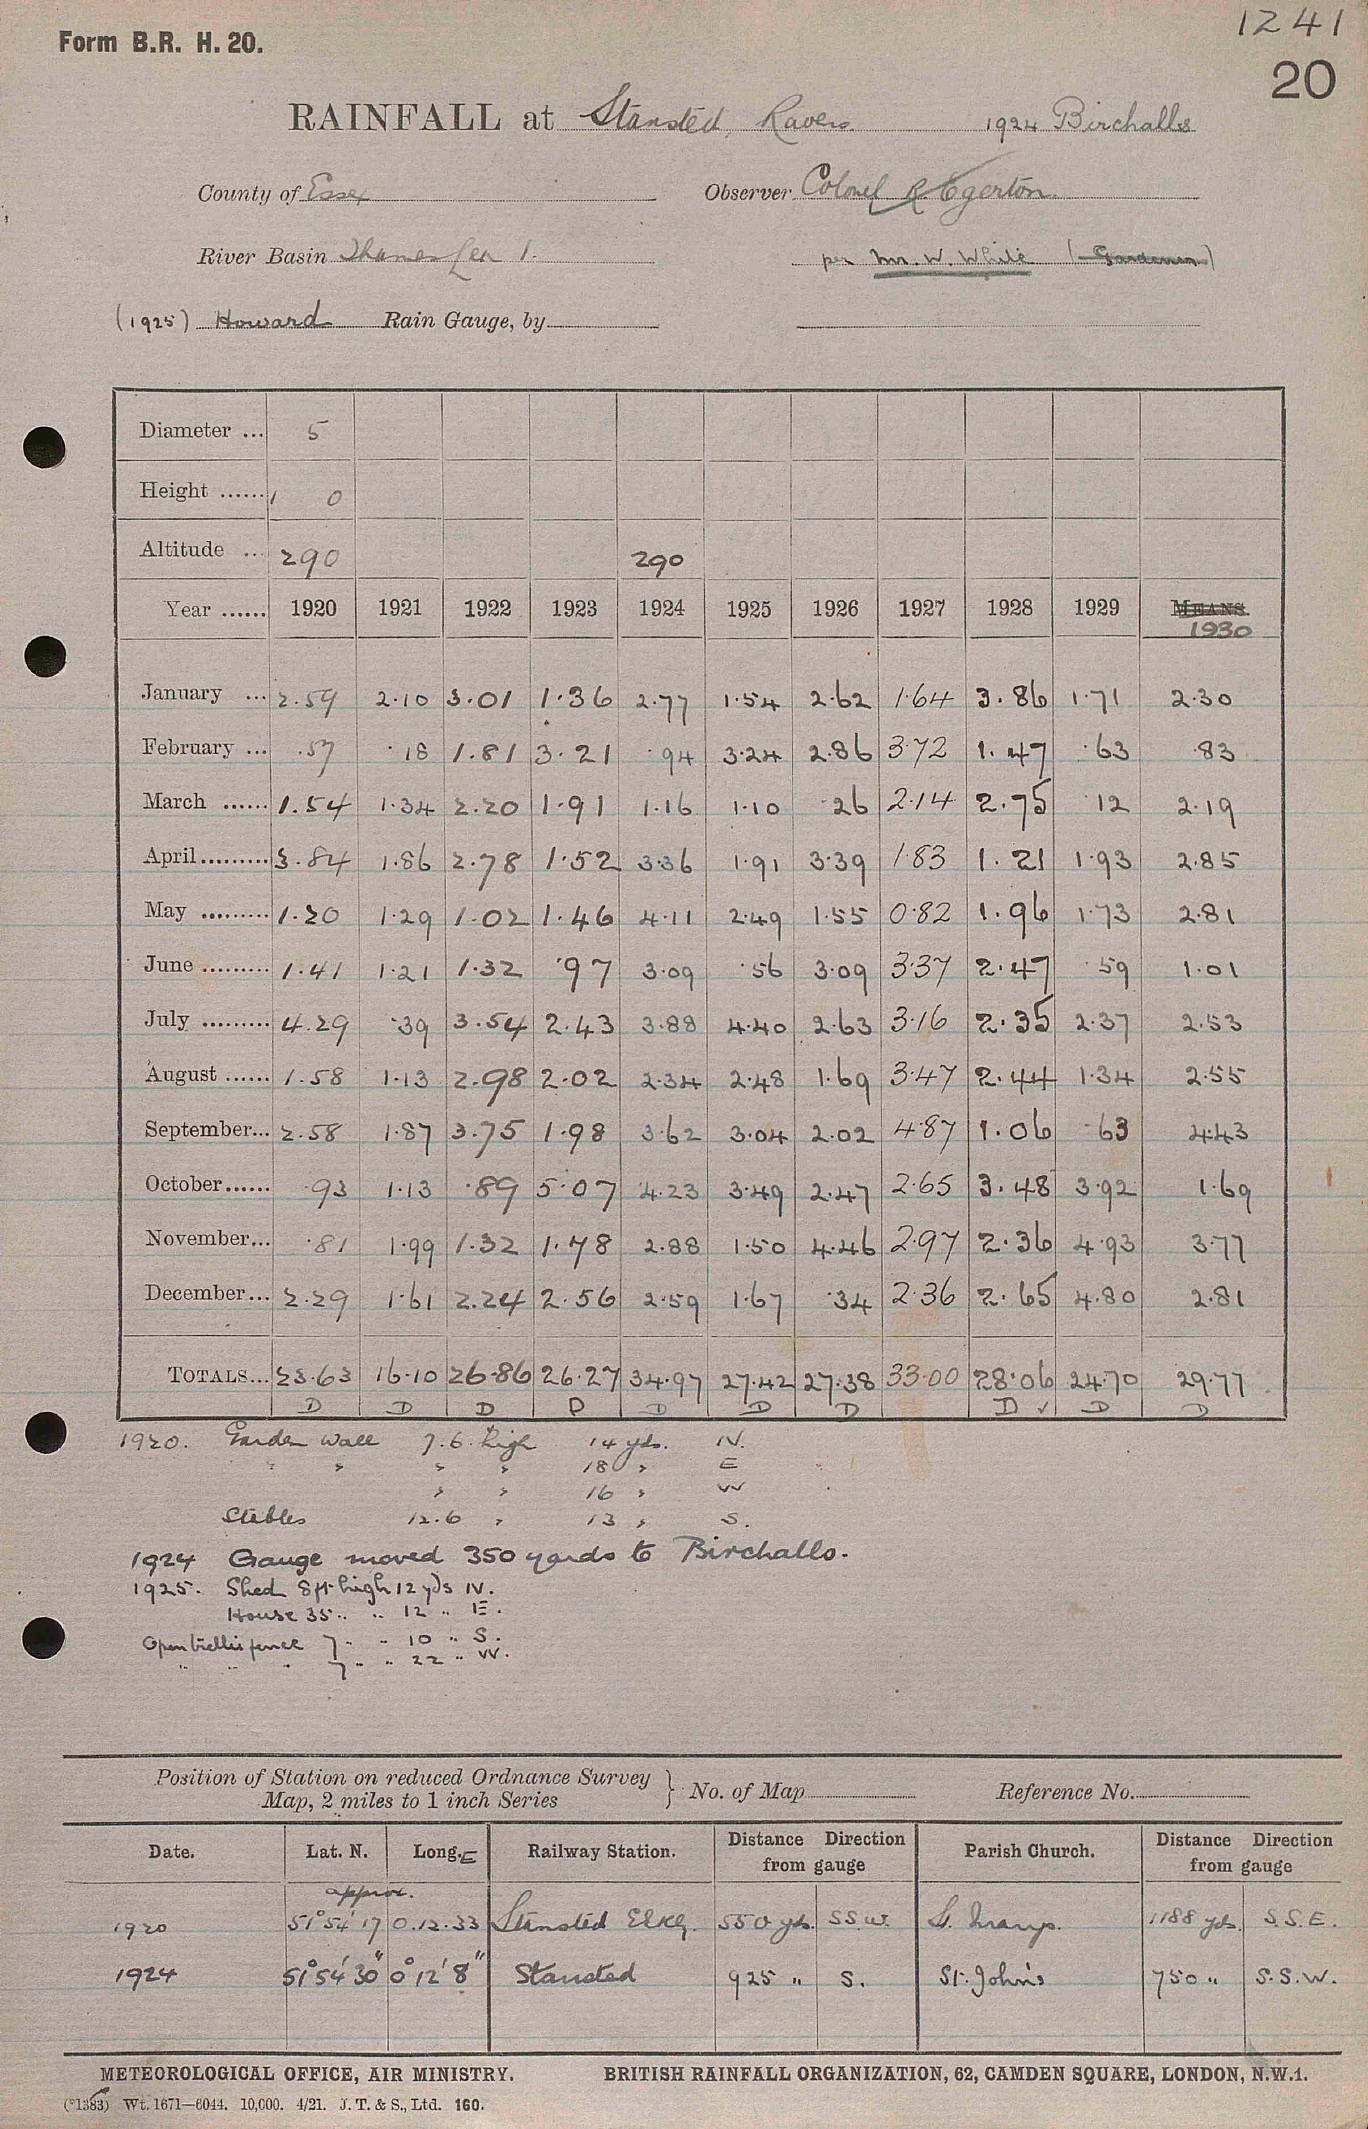 1241
Form B.R. H. 20.
20
RAINFALL at Stansted, Ravens 1924 Birchalls
County of Essex Observer Colonel R Egerton
River Basin Thames Lea 1. per Mr. W. White (Gardener)
(1925) Howard Rain Gauge, by
Diameter ... 5
Height ...... 1 0
Altitude ... 290 290
Year ...... 1920 1921 1922 1923 1924 1925 1926 1927 1928 1929 MEANS 1930
January ... 2.59 2.10 3.01 1.36 2.77 1.54 2.62 1.64 3.86 1.71 2.30
February ... .57 .18 1.81 3.21 .94 3.24 2.86 3.72 1.47 .63 .83
March ...... 1.54 1.34 2.20 1.91 1.16 1.10 .26 2.14 2.75 .12 2.19
April......... 3.84 1.86 2.78 1.52 3.36 1.91 3.39 1.83 1.21 1.93 2.85
May ......... 1.20 1.29 1.02 1.46 4.11 2.49 1.55 0.82 1.96 1.73 2.81
June ......... 1.41 1.21 1.32 .97 3.09 .56 3.09 3.37 2.47 .59 1.01
July ......... 4.29 .39 3.54 2.43 3.88 4.40 2.63 3.16 2.35 2.37 2.53
August ...... 1.58 1.13 2.98 2.02 2.34 2.48 1.69 3.47 2.44 1.34 2.55
September... 2.58 1.87 3.75 1.98 3.62 3.04 2.02 4.87 1.06 .63 4.43
October...... .93 1.13 .89 5.07 4.23 3.49 2.47 2.65 3.48 3.92 1.69
November... .81 1.99 1.32 1.78 2.88 1.50 4.46 2.97 2.36 4.93 3.77
December... 2.29 1.61 2.24 2.56 2.59 1.67 .34 2.36 2.65 4.80 2.81
TOTALS... 23.63 16.10 26.86 26.27 34.97 27.42 27.38 33.00 28.06 24.70 29.77
D D D D D D D D ✓ D D
1920. Garden Wall 7.6 high 14 yds. N.
" " " " 18 " E
" " 16 " W
Stables 12.6 " 13 " S.
1924 Gauge moved 350 yards to Birchalls.
1925. Shed 8ft high 12 yds N.
House 35 " " 12 " E.
Open trellis fence 7 " " 10 " S.
" " " 7 " " 22 " W.
Position of Station on reduced Ordnance Survey
Map, 2 miles to 1 inch Series } No. of Map Reference No.
Date. Lat. N. Long. E Railway Station. Distance Direction from gauge Parish Church. Distance Direction from gauge
approx.
1920 51°54'17 0.12.33 Stansted 550 yds. SSW. St. Marys. 1188 yds. S.S.E.
1924 51°54'30" 0°12'8" Stansted 925 " S. St. John's 750 " S.S.W.
METEOROLOGICAL OFFICE, AIR MINISTRY. BRITISH RAINFALL ORGANIZATION, 62, CAMDEN SQUARE, LONDON, N.W.1.
(*1383) Wt. 1671—6044. 10,000. 4/21. J. T. & S., Ltd. 160.